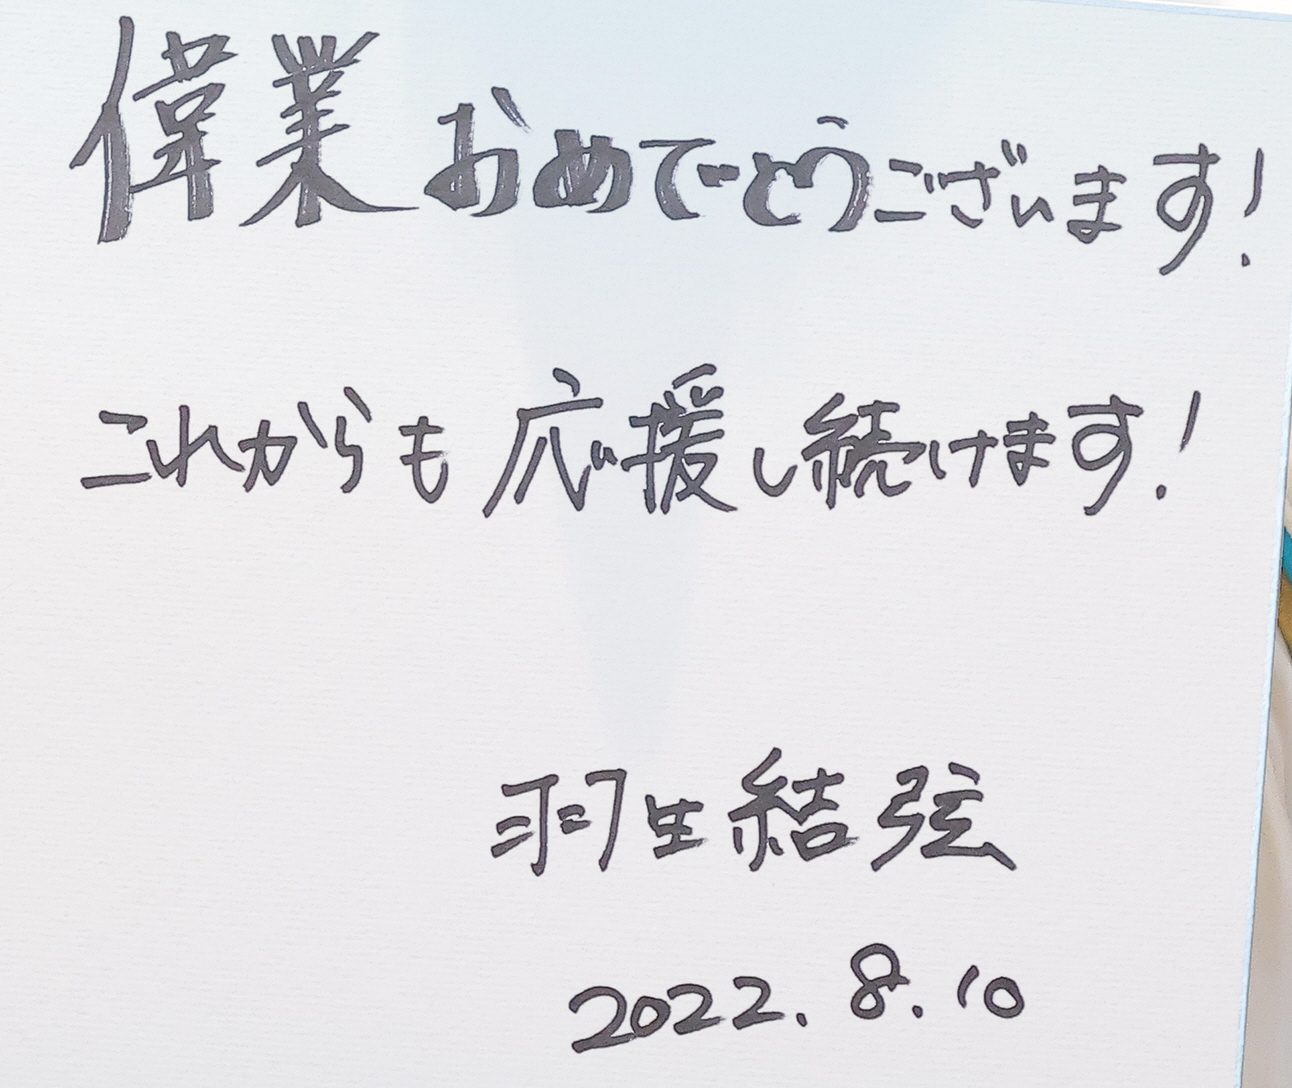 偉業おめでとうございます!
これからも応援し続けます!
羽生結弦
2022.8.10